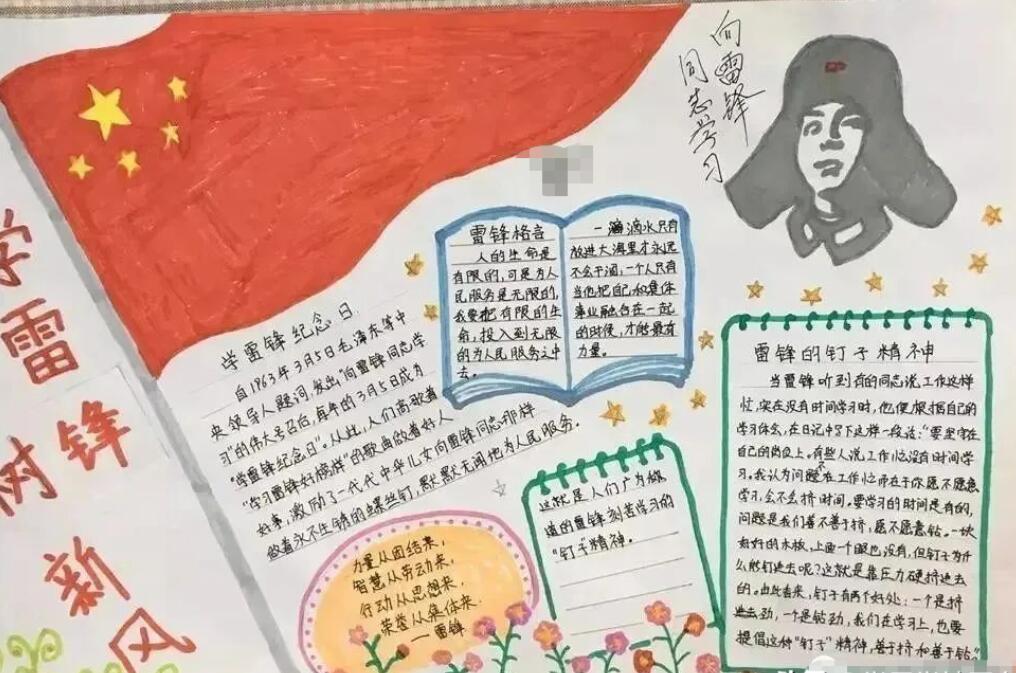 学雷锋
树新风
向雷锋
同志学习
学雷锋纪念日
自1963年3月5日毛泽东等中
央领导人题词,发出"向雷锋同志学
习"的伟大号召后,每年的3月5日成为
"学雷锋纪念日"。从此,人们高歌着
"学习雷锋好榜样"的歌曲做着好人
好事,激励了一代代中华儿女向雷锋同志那样
做着永不生锈的螺丝钉,默默无闻地为人民服务。
雷锋格言
人的生命是
有限的,可是为人
民服务是无限的,
我要把有限的生
命,投入到无限
的为人民服务之中
去。
一滴滴水只有
放进大海里才永远
不会干涸,一个人只有
当他把自己和集体
事业融合在一起
的时候,才能最有
力量。
力量从团结来,
智慧从劳动来,
行动从思想来,
荣誉从集体来.
—雷锋
雷锋的钉子精神
当雷锋听到有的同志说工作这样
忙,实在没有时间学习时,他便根据自己的
学习体会,在日记中写下这样一段话:"要坚守在
自己的岗位上。有些人说工作忙没有时间学
习。我认为问题不在工作忙而在于你愿不愿意
学习,会不会挤时间。要学习的时间是有的,
问题是我们善不善于挤,愿不愿意钻。一块
好好的木板,上面一个眼也没有,但钉子为什
么能钉进去呢?这就是靠压力硬挤进去
的。由此看来,钉子有两个好处:一个是挤
进去劲,一个是钻劲,我们在学习上,也要
提倡这种"钉子"精神,善于挤和善于钻。"
这就是人们广为做
道的雷锋刻苦学习的
"钉子"精神。